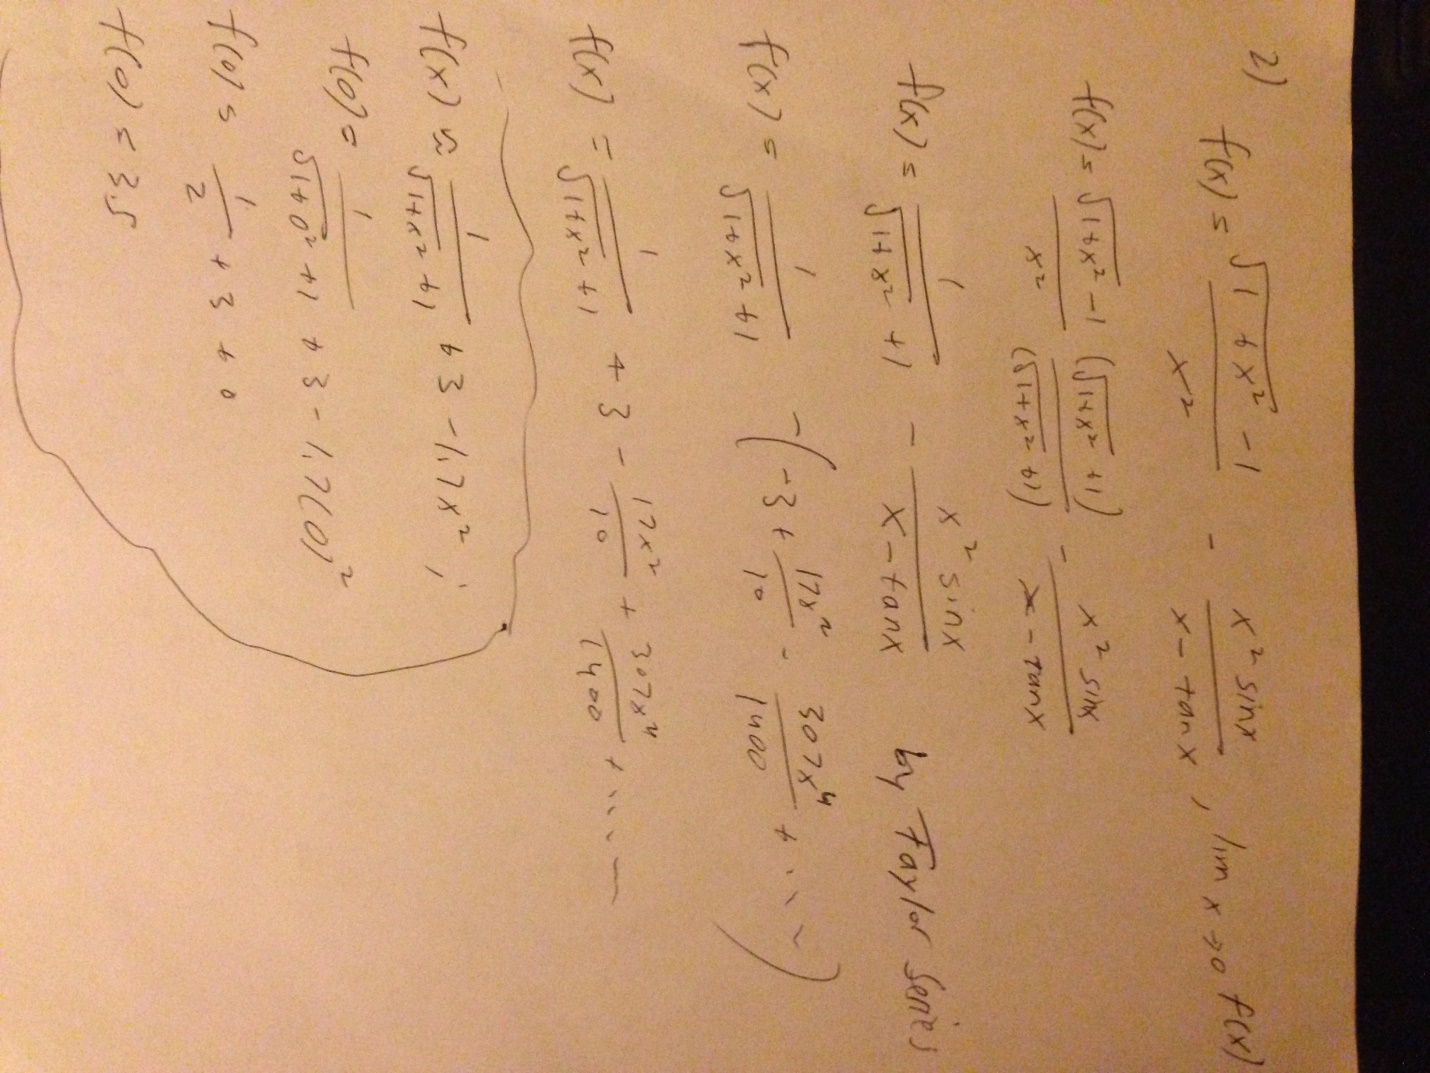 2)
f(x) = √(1 + x²) - 1 / x² - x² sinx / x - tanx , lim x→0 f(x)
f(x) = √(1+x²) - 1 / x² (√(1+x²) + 1) / (√(1+x²) + 1) - x² sinx / x - tanx
f(x) = 1 / √(1+x²) + 1 - x² sinx / x - tanx by Taylor Series
f(x) = 1 / √(1+x²) + 1 - (-3 + 17x² / 10 - 307x⁴ / 1400 + ...)
f(x) = 1 / √(1+x²) + 1 + 3 - 17x² / 10 + 307x⁴ / 1400 + ....
f(x) ≈ 1 / √(1+x²) + 1 + 3 - 1.7x²
f(0) = 1 / √(1+0²) + 1 + 3 - 1.7(0)²
f(0) = 1 / 2 + 3 + 0
f(0) = 3.5